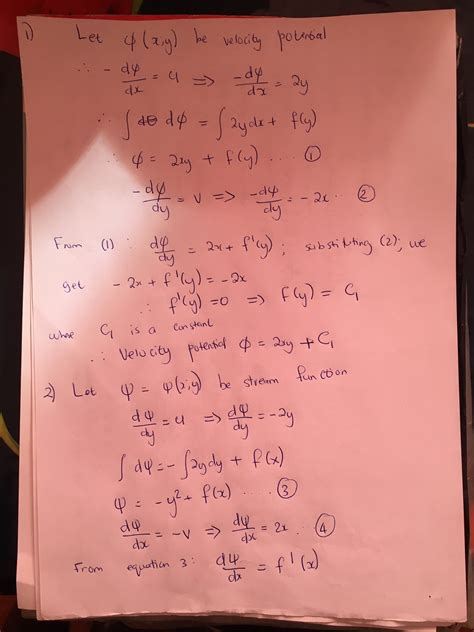 1) Let φ(x,y) be velocity potential
∴ - dφ/dx = u ⇒ -dφ/dx = 2y
∴ ∫ dφ = ∫ 2y dx + f(y)
∴ φ = 2xy + f(y) .... ①
-dφ/dy = v ⇒ -dφ/dy = -2x .. ②
From (1) : dφ/dy = 2x + f'(y) ; substituting (2); we
get - 2x + f'(y) = -2x
∴ f'(y) = 0 ⇒ F(y) = C₁
where C₁ is a constant
∴ Velocity potential φ = 2xy + C₁
2) Let ψ = ψ(x,y) be stream function
dψ/dy = u ⇒ dψ/dy = -2y
∫ dψ = - ∫ 2y dy + f(x)
ψ = -y² + f(x) .... ③
dψ/dx = -v ⇒ dψ/dx = 2x .. ④
From equation 3: dψ/dx = f'(x)